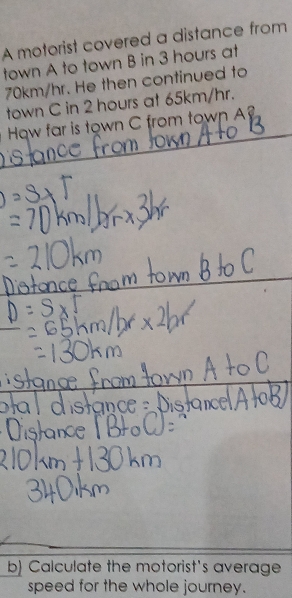 A motorist covered a distance from
town A to town B in 3 hours at
70km/hr. He then continued to
town C in 2 hours at 65km/hr.
How far is town C from town A?
istance from town A to B
D = S x T
= 70km/hr x 3hr
= 210km
Distance from town B to C
D = S x T
= 65km/hr x 2hr
= 130km
istance from town A to C
otal distance = Distance(A to B)
Distance (B to C) =
210km + 130km
340km
b) Calculate the motorist's average
speed for the whole journey.